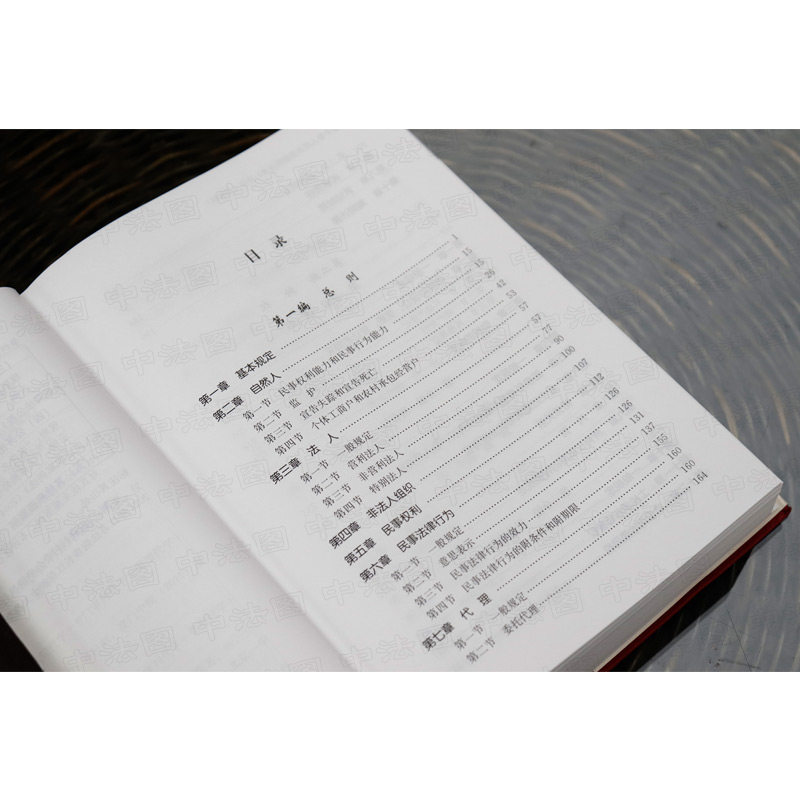 目 录
第一编 总 则
第一章 基本规定 1
第二章 自然人 15
第一节 民事权利能力和民事行为能力 15
第二节 监 护 26
第三节 宣告失踪和宣告死亡 42
第四节 个体工商户和农村承包经营户 53
第三章 法 人 57
第一节 一般规定 57
第二节 营利法人 77
第三节 非营利法人 90
第四节 特别法人 100
第四章 非法人组织 107
第五章 民事权利 112
第六章 民事法律行为 126
第一节 一般规定 126
第二节 意思表示 131
第三节 民事法律行为的效力 137
第四节 民事法律行为的附条件和附期限 155
第七章 代 理 160
第一节 一般规定 160
第二节 委托代理 164
中法图